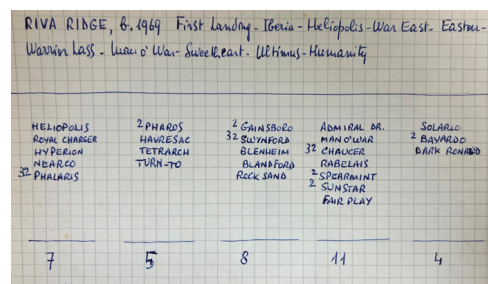 RIVA RIDGE, b. 1969 First Landing - Iberia - Heliopolis - War East - Easton -
Warrior Lass - Man o' War - Sweetheart - Ultimus - Humanity
HELIOPOLIS
ROYAL CHARGER
HYPERION
NEARCO
32 PHALARIS
7
2 PHAROS
HAVRESAC
TETRARCH
TURN-TO
5
2 GAINSBORO
32 SWYNFORD
BLENHEIM
BLANDFORD
ROCK SAND
8
ADMIRAL DR.
MAN O'WAR
32 CHAUCER
RABELAIS
2 SPEARMINT
2 SUNSTAR
FAIR PLAY
11
SOLARIO
2 BAYARDO
DARK RONALD
4